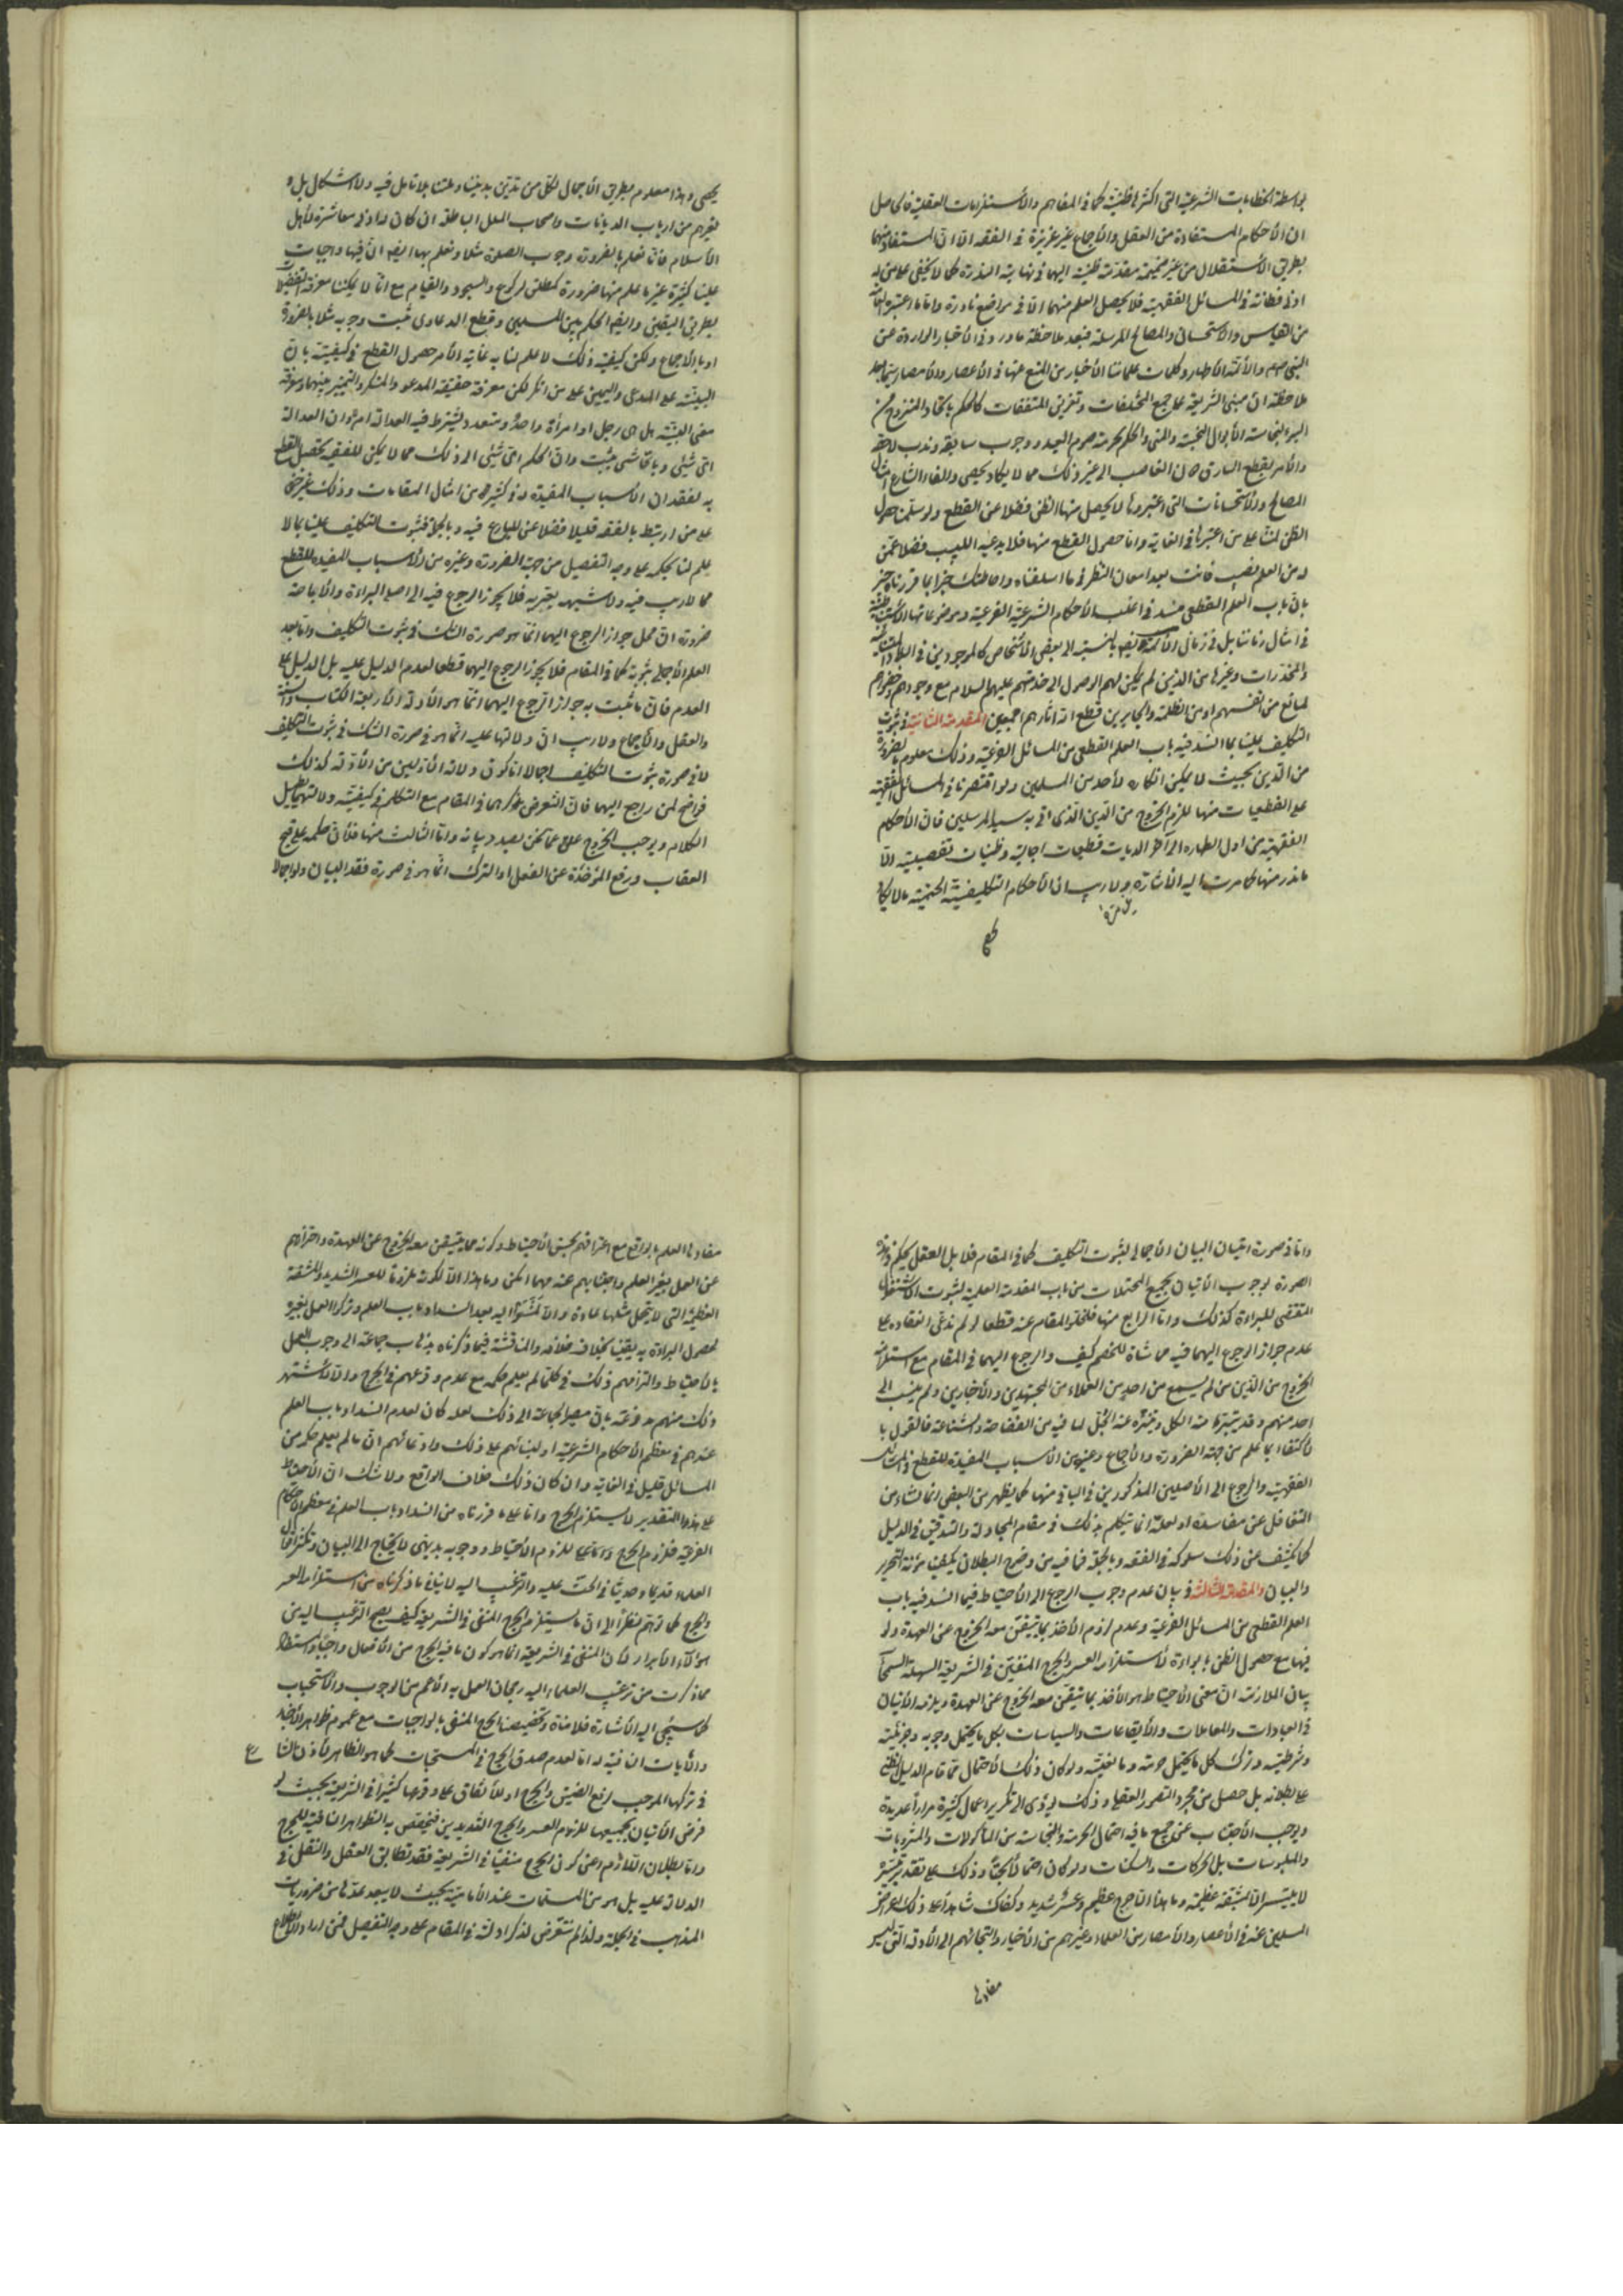 بواسطة الخطابات الشرعية التي اكثرها ظنية كما في المفاهيم والاستلزامات العقلية فالحاصل
ان الاحكام المستفادة من العقل والاجماع غير عزيزة في الفقه الا ان المستفاد منهما
بطريق الاستقلال من غير ضميمة مقدمة ظنية اليهما في نهاية الندرة كما لا يخفى على من له
ادنى فطانة في المسائل الفقهية فلا يحصل العلم منهما الا في مواضع نادرة واما ما اعتبره العامة
من القياس والاستحسان والمصالح المرسلة فبعد ملاحظة ما ورد في الاخبار الواردة عن
النبي صلعم والائمة الاطهار وكلمات علمائنا الاخيار من المنع عنها في الاعصار والامصار سيما بعد
ملاحظة ان مبنى الشريعة على جمع المختلفات وتفريق المتفقات كالحكم باتحاد المنزوح من
البئر لنجاسة الابوال النجسة والمنى والحكم بحرمة صوم العيد ووجوب سابقه وندب لاحقه
والامر بقطع السارق دون الغاصب الى غير ذلك مما لا يكاد يحصى والغاء الشارع امثال
المصالح والاستحسانات التي اعتبروها لا يحصل منها الظن فضلا عن القطع ولو سلمنا حصول
الظن لمنشأ على من اعتبرها في الغاية واما حصول القطع منها فلا يدعيه اللبيب فضلا عمن
له من العلم نصيب فانت بعد امعان النظر في ما اسلفناه واحاطتك خبرا بما قررناه خبير
بان باب العلم القطعي منسد في اغلب الاحكام الشرعية الفرعية وموضوعاتها الاستنباطية
في امثال زماننا بل في زمان الائمة ايضا بالنسبة الى بعض الاشخاص كالموجودين في البلاد النائية
والمخدرات وغيرها من الذين لم يمكن لهم الوصول الى خدمتهم عليهم السلام مع وجودهم وحضورهم
لمانع من انفسهم او من الظلمة والجابرين قطع الله اثارهم اجمعين المقدمة الثانية في ثبوت
التكليف علينا بما انسد فيه باب العلم القطعي من المسائل الفرعية وذلك معلوم بالضرورة
من الدين بحيث لا يمكن انكاره لاحد من المسلمين ولو اقتصرنا في المسائل الفقهية
على القطعيات منها للزم الخروج من الدين الذي اتى به سيد المرسلين فان الاحكام
الفقهية من اول الطهارة الى آخر الديات قطعيات اجمالية وظنيات تفصيلية الا
ما ندر منها كما مرت اليه الاشارة ولا ريب ان الاحكام التكليفية الحتمية ما لا يكاد
يحصى وهذا معلوم بطريق الاجمال لكل من تدين بديننا وملتنا بلا تأمل فيه ولا اشكال بل و
لغيرهم من ارباب الديانات واصحاب الملل الباطلة ان كان له ادنى معاشرة لاهل
الاسلام فانا نعلم بالضرورة وجوب الصلوة مثلا ونعلم بها ايضا ان فيها واجبات
علينا كثيرة غير ما علم منها ضرورة كمطلق الركوع والسجود والقيام مع انا لا يمكننا معرفة التفصيل
بطريق اليقين وايضا الحكم بين المسلمين وقطع الدعاوى ثبت وجوبه مثلا بالضرورة
او بالاجماع ولكن كيفية ذلك لا علم لنا به غاية الامر حصول القطع في كيفيته بان
البينة على المدعى واليمين على من انكر لكن معرفة حقيقة المدعى والمنكر والتمييز بينهما ومعرفة
معنى البينة هل هي رجل او امرأة واحد او متعدد ويشترط فيه العدالة ام لا وان العدالة
اي شيئ وباي شيئ يثبت وان الحكم اي شيئ الى ذلك مما لا يمكن للفقيه تحصيل القطع
به لفقدان الاسباب المفيدة له في كثير من امثال المقامات وذلك غير خفى
على من ارتبط بالفقه قليلا فضلا عن البارع فيه وبالجملة فثبوت التكليف علينا بما لا
علم لنا بحكمه على وجه التفصيل من جهة الضرورة وغيره من الاسباب المفيدة للقطع
مما لا ريب فيه ولا شبهة يعتريه فلا يجوز الرجوع فيه الى اصل البراءة والاباحة
ضرورة ان محل جواز الرجوع اليهما انما هو صورة الشك في ثبوت التكليف واما بعد
العلم الاجمالي بثبوته كما في المقام فلا يجوز الرجوع اليهما قطعا لعدم الدليل عليه بل الدليل على
العدم فان ما ثبت به جواز الرجوع اليهما انما هو الادلة الاربعة الكتاب والسنة
والعقل والاجماع ولا ريب ان دلالتها عليه انما هو في صورة الشك في ثبوت التكليف
لا في صورة ثبوت التكليف اجمالا اما كون دلالة الاولين من الادلة كذلك
فواضح لمن راجع اليهما فان التعرض بذكرهما في المقام مع التكلم في كيفية دلالتهما يطيل
الكلام ويوجب الخروج عما نحن بصدد بيانه واما الثالث منها فلان حكمه على قبح
العقاب ورفع المؤاخذة عن الفعل او الترك انما هو في صورة فقد البيان ولو اجمالا
واما في صورة اتيان البيان الاجمالي لثبوت التكليف كما في المقام فلا بل العقل يحكم في هذه
الصورة بوجوب الاتيان بجميع المحتملات من باب المقدمة العلمية لثبوت الاشتغال
المقتضى للبراءة كذلك واما الرابع منها فلخلو المقام عنه قطعا لو لم ندعى انعقاده على
عدم جواز الرجوع اليهما فيه مماشاة للخصم كيف والرجوع اليهما في المقام مع استلزامه
الخروج من الدين مما لم يسمع من احد من العلماء من المجتهدين والاخباريين ولم ينسب الى
احد منهم وقد يتبرء منه الكل ويتنزه عنه الجل لما فيه من الفضاحة والشناعة فالقول با
لاكتفاء بما علم من جهة الضرورة والاجماع وغيرهما من الاسباب المفيدة للقطع في المسائل
الفقهية والرجوع الى الاصلين المذكورين في الباقي منها كما يظهر من البعض انما نشاء من
التغافل عن مفاسده او لعله انما تكلم بذلك في مقام المجادلة والتدقيق في الدليل
كما يكشف عن ذلك سلوكه في الفقه وبالجملة فما فيه من وضوح البطلان يكفينا مؤنة التحرير
والبيان والمقدمة الثالثة في بيان عدم وجوب الرجوع الى الاحتياط فيما انسد فيه باب
العلم القطعي من المسائل الفرعية وعدم لزوم الاخذ بما يتيقن معه الخروج عن العهدة ولو
فيها مع حصول الظن بالبراءة لاستلزامه العسر والحرج المنفيين في الشريعة السهلة السمحاء
بيان الملازمة ان معنى الاحتياط هو الاخذ بما يتيقن معه الخروج عن العهدة ويلزمه الاتيان
في العبادات والمعاملات والايقاعات والسياسات بكل ما يحتمل وجوبه وجزئيته
وشرطيته وترك كل ما يحتمل حرمته ومانعيته ولو كان ذلك الاحتمال مما قام الدليل الظني
على بطلانه بل حصل من مجرد التصور العقلي وذلك يؤدى الى تكرير اعمال كثيرة مرارا عديدة
ويوجب الاجتناب عن جميع ما فيه احتمال الحرمة والنجاسة من المأكولات والمشروبات
والملبوسات بل الحركات والسكنات ولو كان احتمالا بحتا وذلك على تقدير تيسره
لا يتيسر الا بمشقة عظيمة وما هذا الا حرج عظيم وعسر شديد وكفاك شاهدا على ذلك اعراض
المسلمين عنه في الاعصار والامصار من العلماء وغيرهم من الاخيار والتجائهم الى الادلة التي ليس
مفادها
مفادها العلم بالواقع مع اعترافهم بحسن الاحتياط وكونه مما يتيقن معه الخروج عن العهدة واحترازهم
عن العمل بغير العلم واجتنابهم عنه مهما امكن وما هذا الا لكونه ملزوما للعسر الشديد والمشقة
العظيمة التي لا يتحمل مثلها عادة والا لمشوا اليه بعد انسداد باب العلم وتركوا العمل بغيره
لحصول البراءة به يقينا بخلاف خلافه والمناقشة فيما ذكرناه بذهاب جماعة الى وجوب العمل
بالاحتياط والتزامهم ذلك في كلما لم يعلم حكمه مع عدم وقوعهم في الحرج والا لاشتهر
وذلك منهم مدفوعة بان مصير الجماعة الى ذلك لعله كان لعدم انسداد باب العلم
عندهم في معظم الاحكام الشرعية او لبنائهم على ذلك وادعائهم ان ما لم يعلم حكمه من
المسائل قليل في الغاية وان كان ذلك خلاف الواقع ولا شك ان الاحتياط
على هذا التقدير لا يستلزم الحرج واما على ما قررناه من انسداد باب العلم في معظم الاحكام
الفرعية فلزوم الحرج للزوم الاحتياط ووجوبه بديهى لا يحتاج الى البيان
العلماء قديما وحديثا في الحث عليه والترغيب اليه لا ينافي ما ذكرناه من استلزامه العسر
والحرج كما توهم نظرا الى ان ما يستلزم الحرج المنفى في الشريعة كيف يصح الترغيب اليه من
هؤلاء الابرار لان المنفى في الشريعة انما هو كون ما فيه الحرج من الافعال واجبا
مما ذكرت من ترغيب العلماء اليه رجحان العمل به الاعم من الوجوب والاستحباب
كما سيجئ اليه الاشارة فلا منافاة وتخصيصنا الحرج المنفى بالواجبات مع عموم ظواهر الاخبار
والآيات النافية له اما لعدم صدق الحرج في المستحبات كما هو الظاهر لاذن الشا
رع
في تركها الموجب لرفع الضيق والحرج او للاتفاق على وقوعها كثيرا في الشريعة بحيث لو
فرض الاتيان بجميعها للزوم العسر والحرج الشديدين فيختص به الظواهر النافية للحرج
واما بطلان اللازم اعنى كون الحرج منفيا في الشريعة فقد تطابق العقل والنقل في
الدلالة عليه بل هو من المسلمات عند الامامية بحيث لا يبعد عده من ضروريات
المذهب في الجملة ولذا لم نتعرض لذكر ادلته في المقام على وجه التفصيل فمن اراد الاطلاع